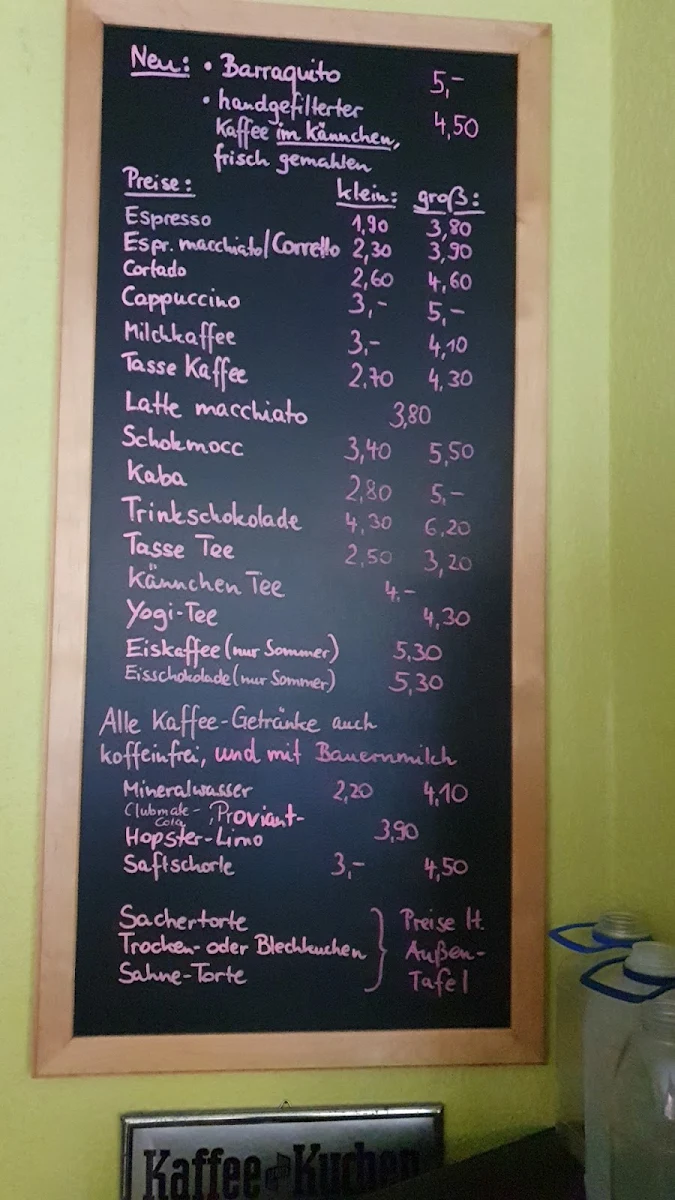 Neu: • Barraquito 5,-
• handgefilterter
Kaffee im kännchen, 4,50
frisch gemahlen
Preise: klein: groß:
Espresso 1,90 3,80
Espr. macchiato/Corretto 2,30 3,90
Cortado 2,60 4,60
Cappuccino 3,- 5,-
Milchkaffee 3,- 4,10
Tasse Kaffee 2,70 4,30
Latte macchiato 3,80
Schokmocc 3,40 5,50
Kaba 2,80 5,-
Trinkschokolade 4,30 6,20
Tasse Tee 2,50 3,20
Kännchen Tee 4,-
Yogi-Tee 4,30
Eiskaffee (nur Sommer) 5,30
Eisschokolade (nur Sommer) 5,30
Alle Kaffee-Getränke auch
koffeinfrei, und mit Bauernmilch
Mineralwasser 2,20 4,10
Clubmate-Cola, Proviant-
Hopster-Limo 3,90
Saftschorle 3,- 4,50
Sachertorte Preise lt.
Trocken- oder Blechkuchen Außen-
Sahne-Torte Tafel
Kaffee und Kuchen